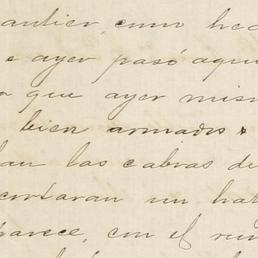 antier, cum hec
e ayer pasó aqui
a que ayer mism
bien armados
an las cabras de
cortaran un hat
parece, con el